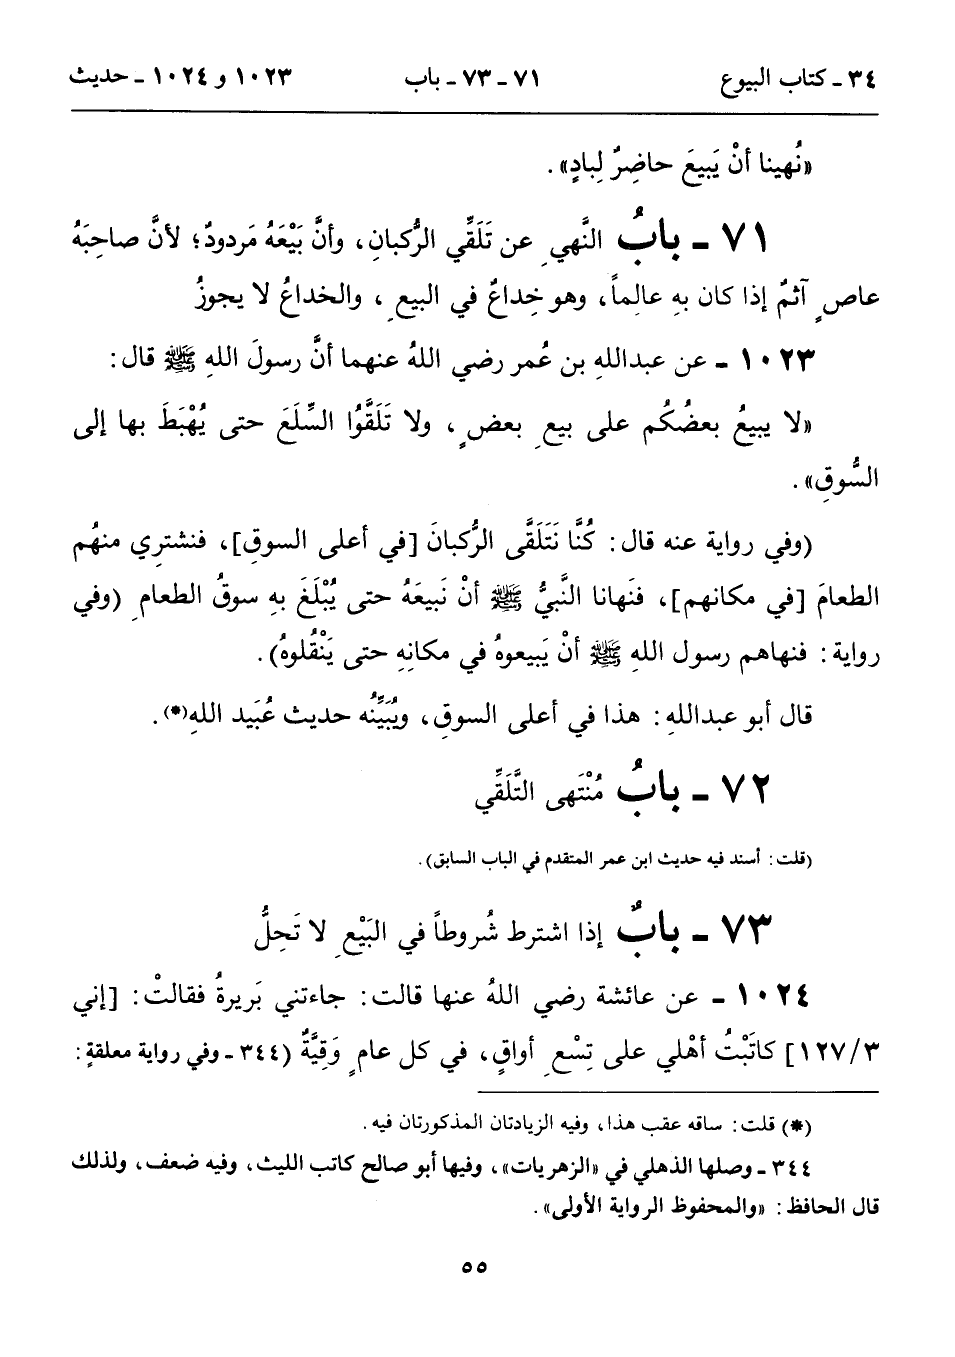 ٣٤ ـ كتاب البيوع ٧١ ـ ٧٣ ـ باب ١٠٢٣ و ١٠٢٤ ـ حديث
«نُهينا أنْ يَبيعَ حاضِرٌ لِبادٍ».
٧١ ـ بابُ النَّهيِ عن تَلَقِّي الرُّكبانِ، وأنَّ بَيْعَهُ مَردودٌ؛ لأنَّ صاحِبَهُ
عاصٍ آثمٌ إذا كان بهِ عالِماً، وهو خِداعٌ في البيعِ، والخداعُ لا يجوزُ
١٠٢٣ ـ عن عبداللهِ بن عُمر رضي اللهُ عنهما أنَّ رسولَ اللهِ ﷺ قال:
«لا يبيعُ بعضُكُم على بيعِ بعضٍ، ولا تَلَقَّوُا السِّلَعَ حتى يُهْبَطَ بها إلى
السُّوقِ».
(وفي رواية عنه قال: كُنَّا نَتَلَقَّى الرُّكبانَ [في أعلى السوقِ]، فنشترِي منهُم
الطعامَ [في مكانهم]، فنَهانا النَّبيُّ ﷺ أنْ نَبيعَهُ حتى يُبْلَغَ بهِ سوقُ الطعامِ (وفي
رواية: فنهاهم رسول اللهِ ﷺ أنْ يَبيعوهُ في مكانِهِ حتى يَنْقُلوهُ).
قال أبو عبداللهِ: هذا في أعلى السوقِ، ويُبَيِّنُه حديث عُبَيد اللهِ(*).
٧٢ ـ بابُ مُنْتَهى التَّلَقِّي
(قلت: أسند فيه حديث ابن عمر المتقدم في الباب السابق).
٧٣ ـ بابٌ إذا اشترط شُروطاً في البَيْعِ لا تَحِلُّ
١٠٢٤ ـ عن عائشة رضي اللهُ عنها قالت: جاءتني بَريرةُ فقالتْ: [إني
١٢٧/٣] كاتَبْتُ أهْلي على تِسْعِ أواقٍ، في كل عامٍ وَقِيَّةٌ (٣٤٤ ـ وفي رواية معلقةٍ:
(*) قلت: ساقه عقب هذا، وفيه الزيادتان المذكورتان فيه.
٣٤٤ ـ وصلها الذهلي في «الزهريات»، وفيها أبو صالح كاتب الليث، وفيه ضعف، ولذلك
قال الحافظ: «والمحفوظ الرواية الأولى».
٥٥